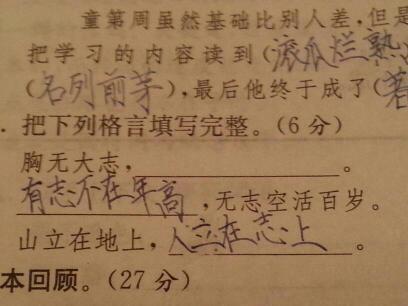 童第周虽然基础比别人差，但是
把学习的内容读到（滚瓜烂熟
（名列前茅），最后他终于成了（著
．把下列格言填写完整。（6分）
胸无大志，＿＿＿＿＿＿。
有志不在年高，无志空活百岁。
山立在地上，人立在志上。
本回顾。（27分）